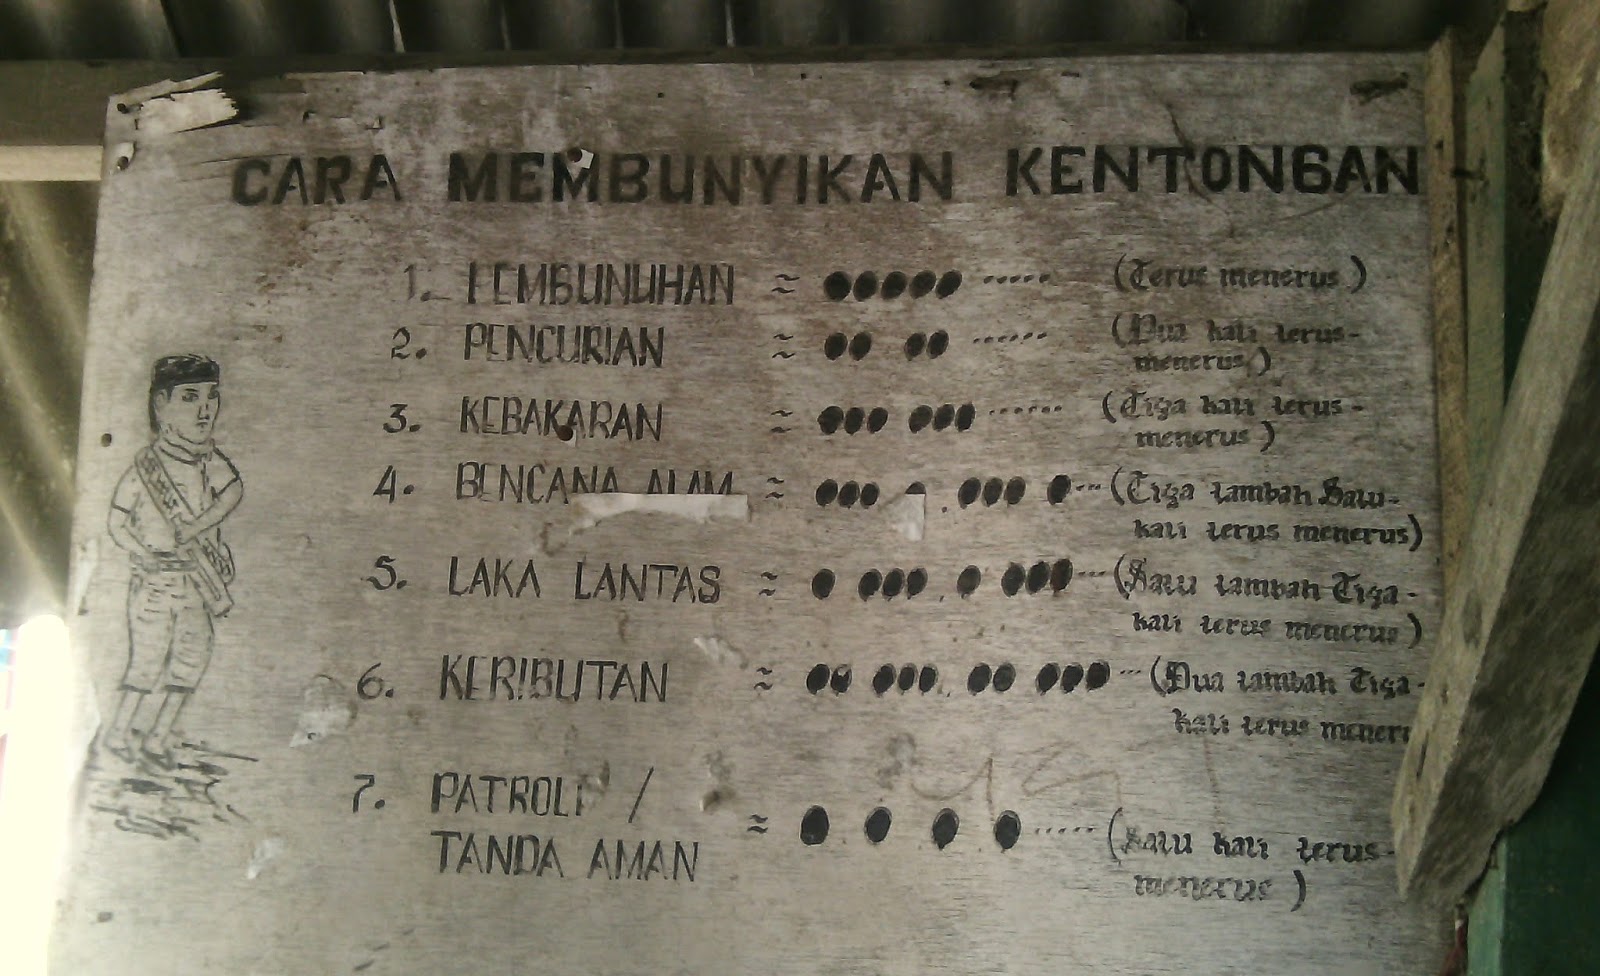 CARA MEMBUNYIKAN KENTONGAN
1. PEMBUNUHAN ≈ ●●●●● ...... (Terus menerus)
2. PENCURIAN ≈ ●● ●● ...... (Dua kali terus-
menerus)
3. KEBAKARAN ≈ ●●● ●●● ...... (Tiga kali terus-
menerus)
4. BENCANA ALAM ≈ ●●● ● . ●●● ● ... (Tiga tambah Satu-
kali terus menerus)
5. LAKA LANTAS ≈ ● ●●● . ● ●●● ... (Satu tambah Tiga-
kali terus menerus)
6. KERIBUTAN ≈ ●● ●●● . ●● ●●● ... (Dua tambah Tiga-
kali terus meneru
7. PATROLI /
TANDA AMAN ≈ ● ● ● ● ..... (Satu kali terus-
menerus)